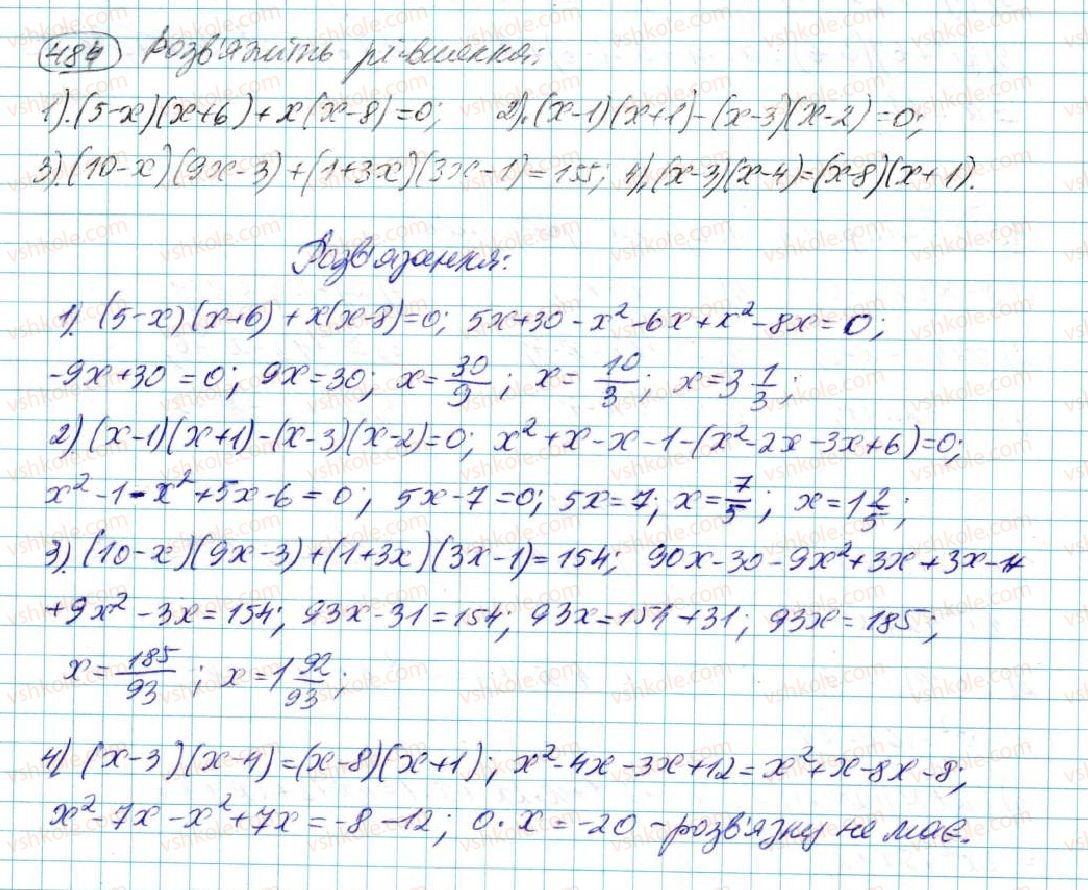 484 Розв'яжіть рівняння:
1). (5-x)(x+6)+x(x-8)=0; 2). (x-1)(x+1)-(x-3)(x-2)=0;
3). (10-x)(9x-3)+(1+3x)(3x-1)=155; 4). (x-3)(x-4)=(x-8)(x+1).
Розв'язання:
1). (5-x)(x+6)+x(x-8)=0; 5x+30-x²-6x+x²-8x=0;
-9x+30=0; 9x=30; x=30/9; x=10/3; x=3 1/3;
2) (x-1)(x+1)-(x-3)(x-2)=0; x²+x-x-1-(x²-2x-3x+6)=0;
x²-1-x²+5x-6=0; 5x-7=0; 5x=7; x=7/5; x=1 2/5;
3). (10-x)(9x-3)+(1+3x)(3x-1)=154; 90x-30-9x²+3x+3x-1+
+9x²-3x=154; 93x-31=154; 93x=154+31; 93x=185;
x=185/93; x=1 92/93;
4) (x-3)(x-4)=(x-8)(x+1); x²-4x-3x+12=x²+x-8x-8;
x²-7x-x²+7x=-8-12; 0·x=-20 - розв'язку не має.